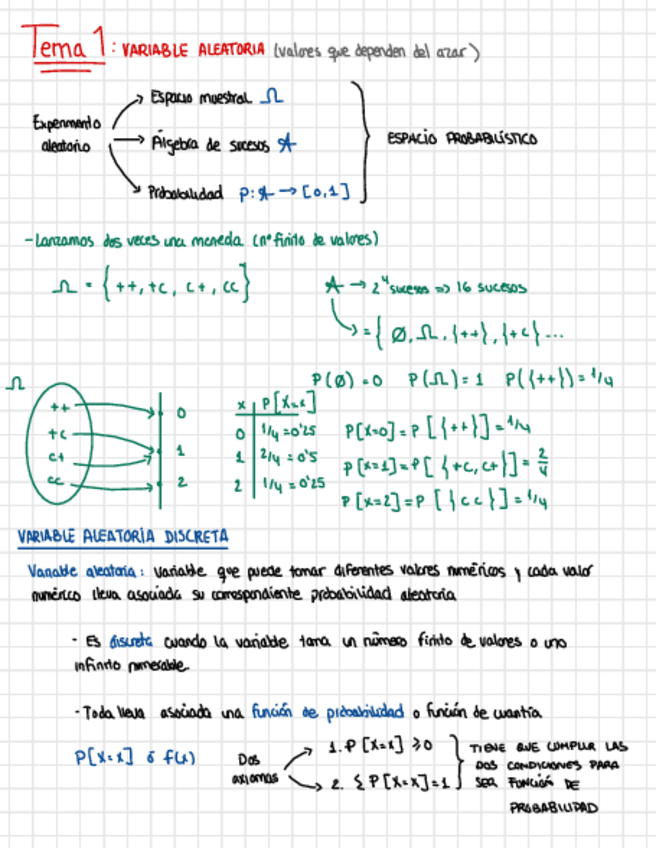 Tema 1: VARIABLE ALEATORIA (valores que dependen del azar)
Espacio muestral Ω
Experimento aleatorio
Álgebra de sucesos A
ESPACIO PROBABILÍSTICO
Probabilidad p: A → [0,1]
- Lanzamos dos veces una moneda (nº finito de valores)
Ω = {++, +c, c+, cc}
A → 2⁴ sucesos => 16 sucesos
= {∅, Ω, {++}, {+c} ...
P(∅) = 0 P(Ω) = 1 P({++}) = 1/4
Ω
++
+c
c+
cc
0
1
2
x P[X=x]
0 1/4 = 0'25
1 2/4 = 0'5
2 1/4 = 0'25
P[X=0] = P[{++}] = 1/4
P[X=1] = P[{+c, c+}] = 2/4
P[X=2] = P[{cc}] = 1/4
VARIABLE ALEATORIA DISCRETA
Variable aleatoria: variable que puede tomar diferentes valores numéricos y cada valor
numérico lleva asociada su correspondiente probabilidad aleatoria
- Es discreta cuando la variable toma un número finito de valores o uno
infinito numerable.
- Toda lleva asociada una función de probabilidad o función de cuantía
P[X=x] ó f(x)
Dos axiomas
1. P[X=x] ≥ 0
2. Σ P[X=x] = 1
TIENE QUE CUMPLIR LAS
DOS CONDICIONES PARA
SER FUNCIÓN DE
PROBABILIDAD